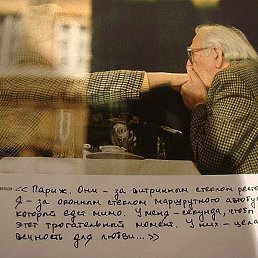 « Париж. Они – за витринным стеклом
Я – за оконным стеклом маршрутного
который едет мимо. У меня – секунда, чтобы
этот трогательный момент. У них – целая
вечность для любви...»